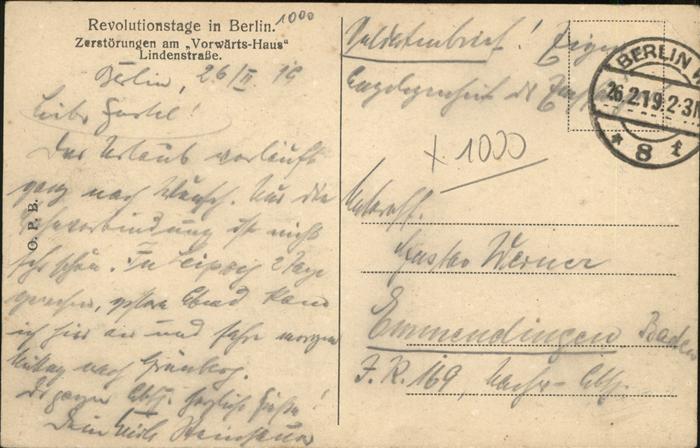 Revolutionstage in Berlin.
1000
Zerstörungen am „Vorwärts-Haus"
Lindenstraße.
Berlin, 26/II 19
Lieber Gustel!
Der Urlaub verläuft
ganz nach Wunsch. Nur die
ist nicht
sehr schön. In Leipzig 2 Tage
gestern Abend kam
ich hier an und fahre morgen
Mittag nach Grünberg.
herzliche Grüße!
Dein
O. P. B.
Soldatenbrief! Eigene
Angelegenheit des Empf.
BERLIN
26.2.19.2-3N
* 8 f
x 1000
Unteroff.
Gustav Werner
Emmendingen Baden
J. R. 169,